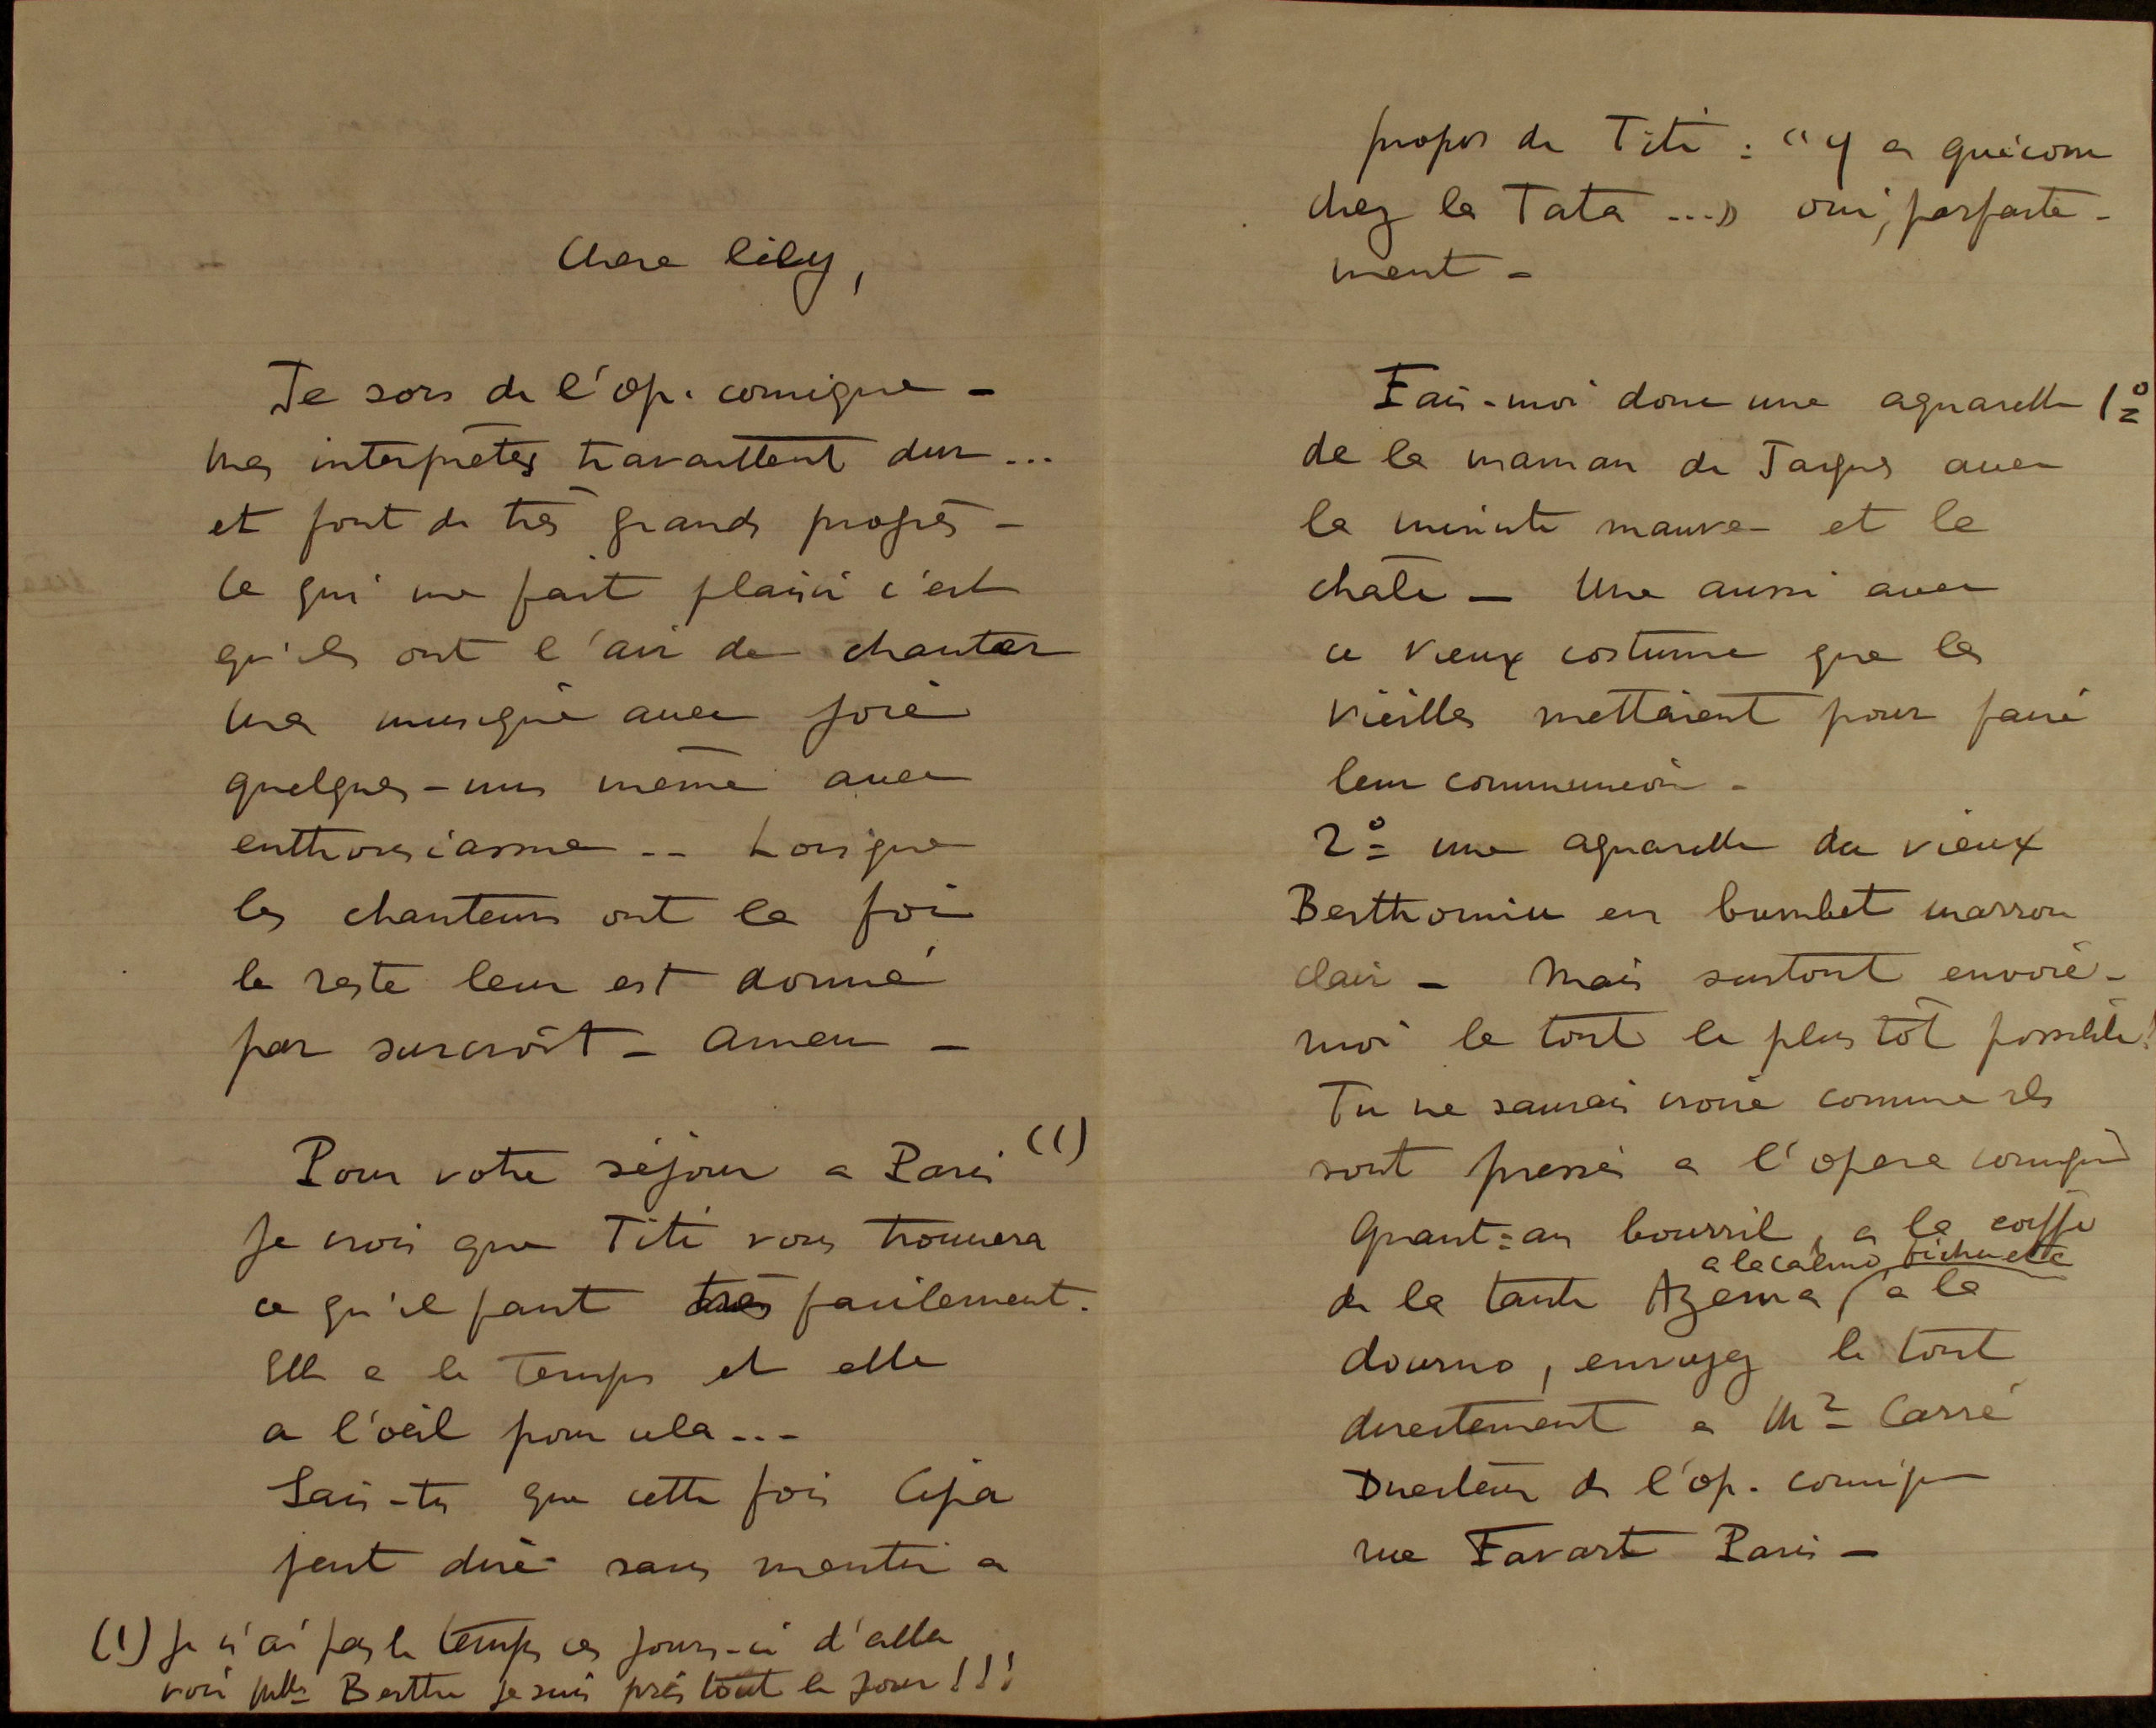 Chere Lily,
Je sors de l'Op. comique -
Mes interprètes travaillent dur...
et font de très grands progrès -
Ce qui me fait plaisir c'est
qu'ils ont l'air de chanter
ma musique avec joie
quelques-uns même avec
enthousiasme -- Lorsque
les chanteurs ont la foi
le reste leur est donné
par surcroît - Amen -
Pour votre séjour a Paris (1)
Je crois que Titi vous trouvera
ce qu'il faut très facilement.
Elle a le temps et elle
a l'oeil pour cela...
Sais-tu que cette fois
peut dire sans mentir a
(1) Je n'ai pas le temps ces jours-ci d'aller
voir Mlle Berthe je suis pris tout le jour!!!
propos de Titi : "Y a quicom
chez la Tata ..." oui, parfaite-
ment -
Fais-moi donc une aquarelle 1°
de la maman de Jacques avec
la minute mauve et le
châle - Une aussi avec
ce vieux costume que les
vieilles mettaient pour faire
leur communion -
2° une aquarelle du vieux
Berthomieu en bumbet marron
clair - Mais surtout envoie-
moi le tout le plus tôt possible!
Tu ne saurais croire comme ils
sont pressés a l'opera comique
Quant-au bourril, a la coiffe
a la calino fichu etc
de la tante Azema, a la
dourno, envoyez le tout
directement a Mr Carré
Directeur de l'Op. comique
rue Favart Paris -